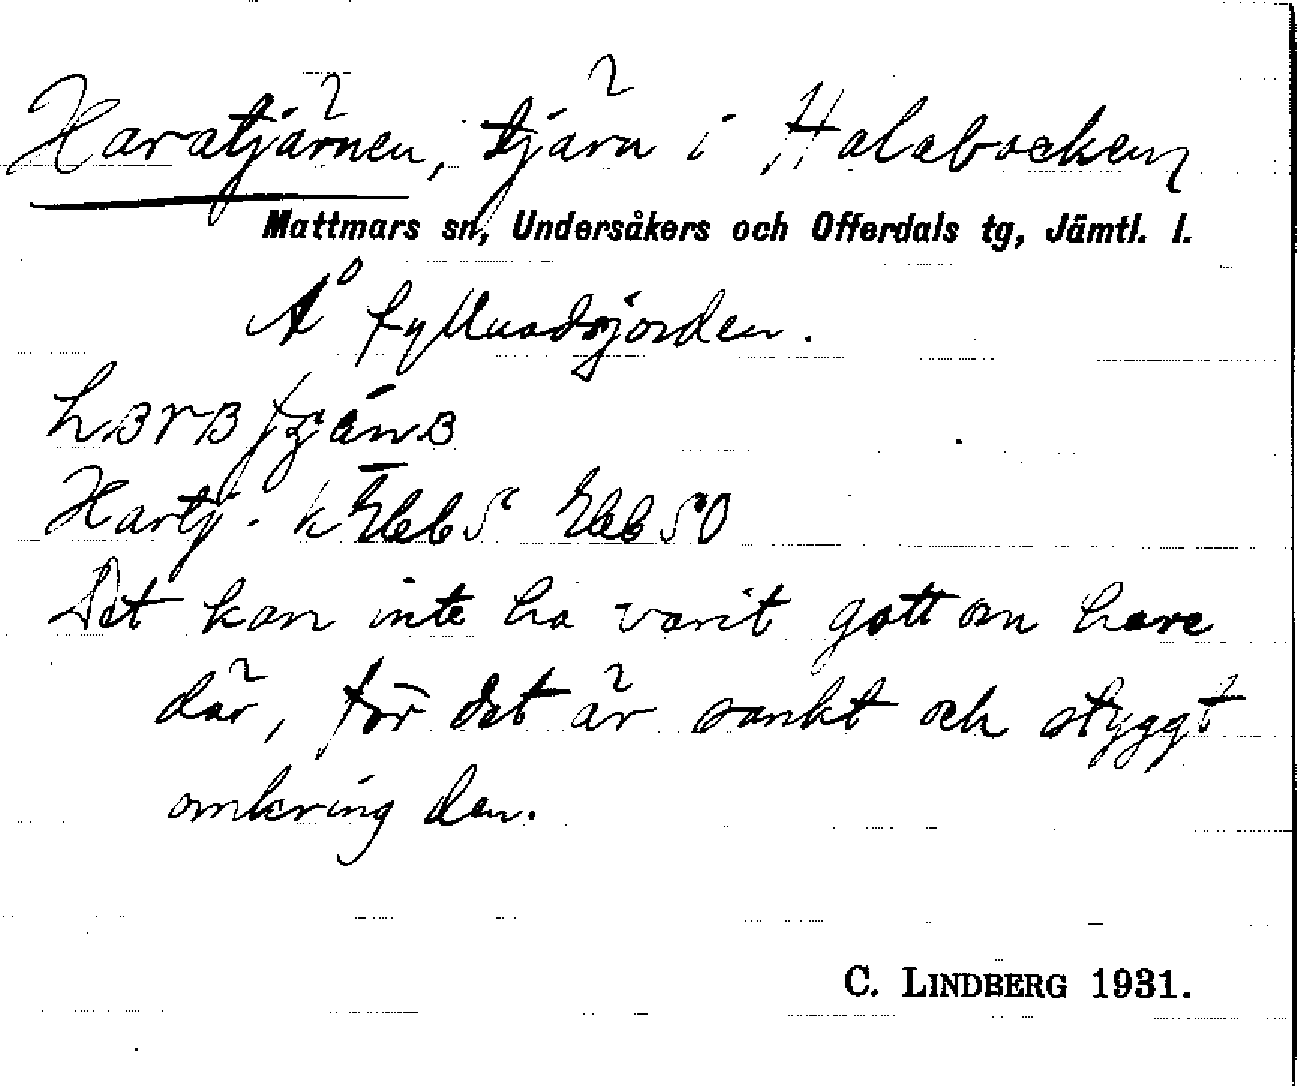 Haratjärnen, tjärn i Halabacken
Mattmars sn, Undersåkers och Offerdals tg, Jämtl. l.
Å fyllnadsjorden.
Hartj.
Det kan inte ha varit gott om hare
där, för det är sankt och styggt
omkring den.
C. LINDBERG 1931.